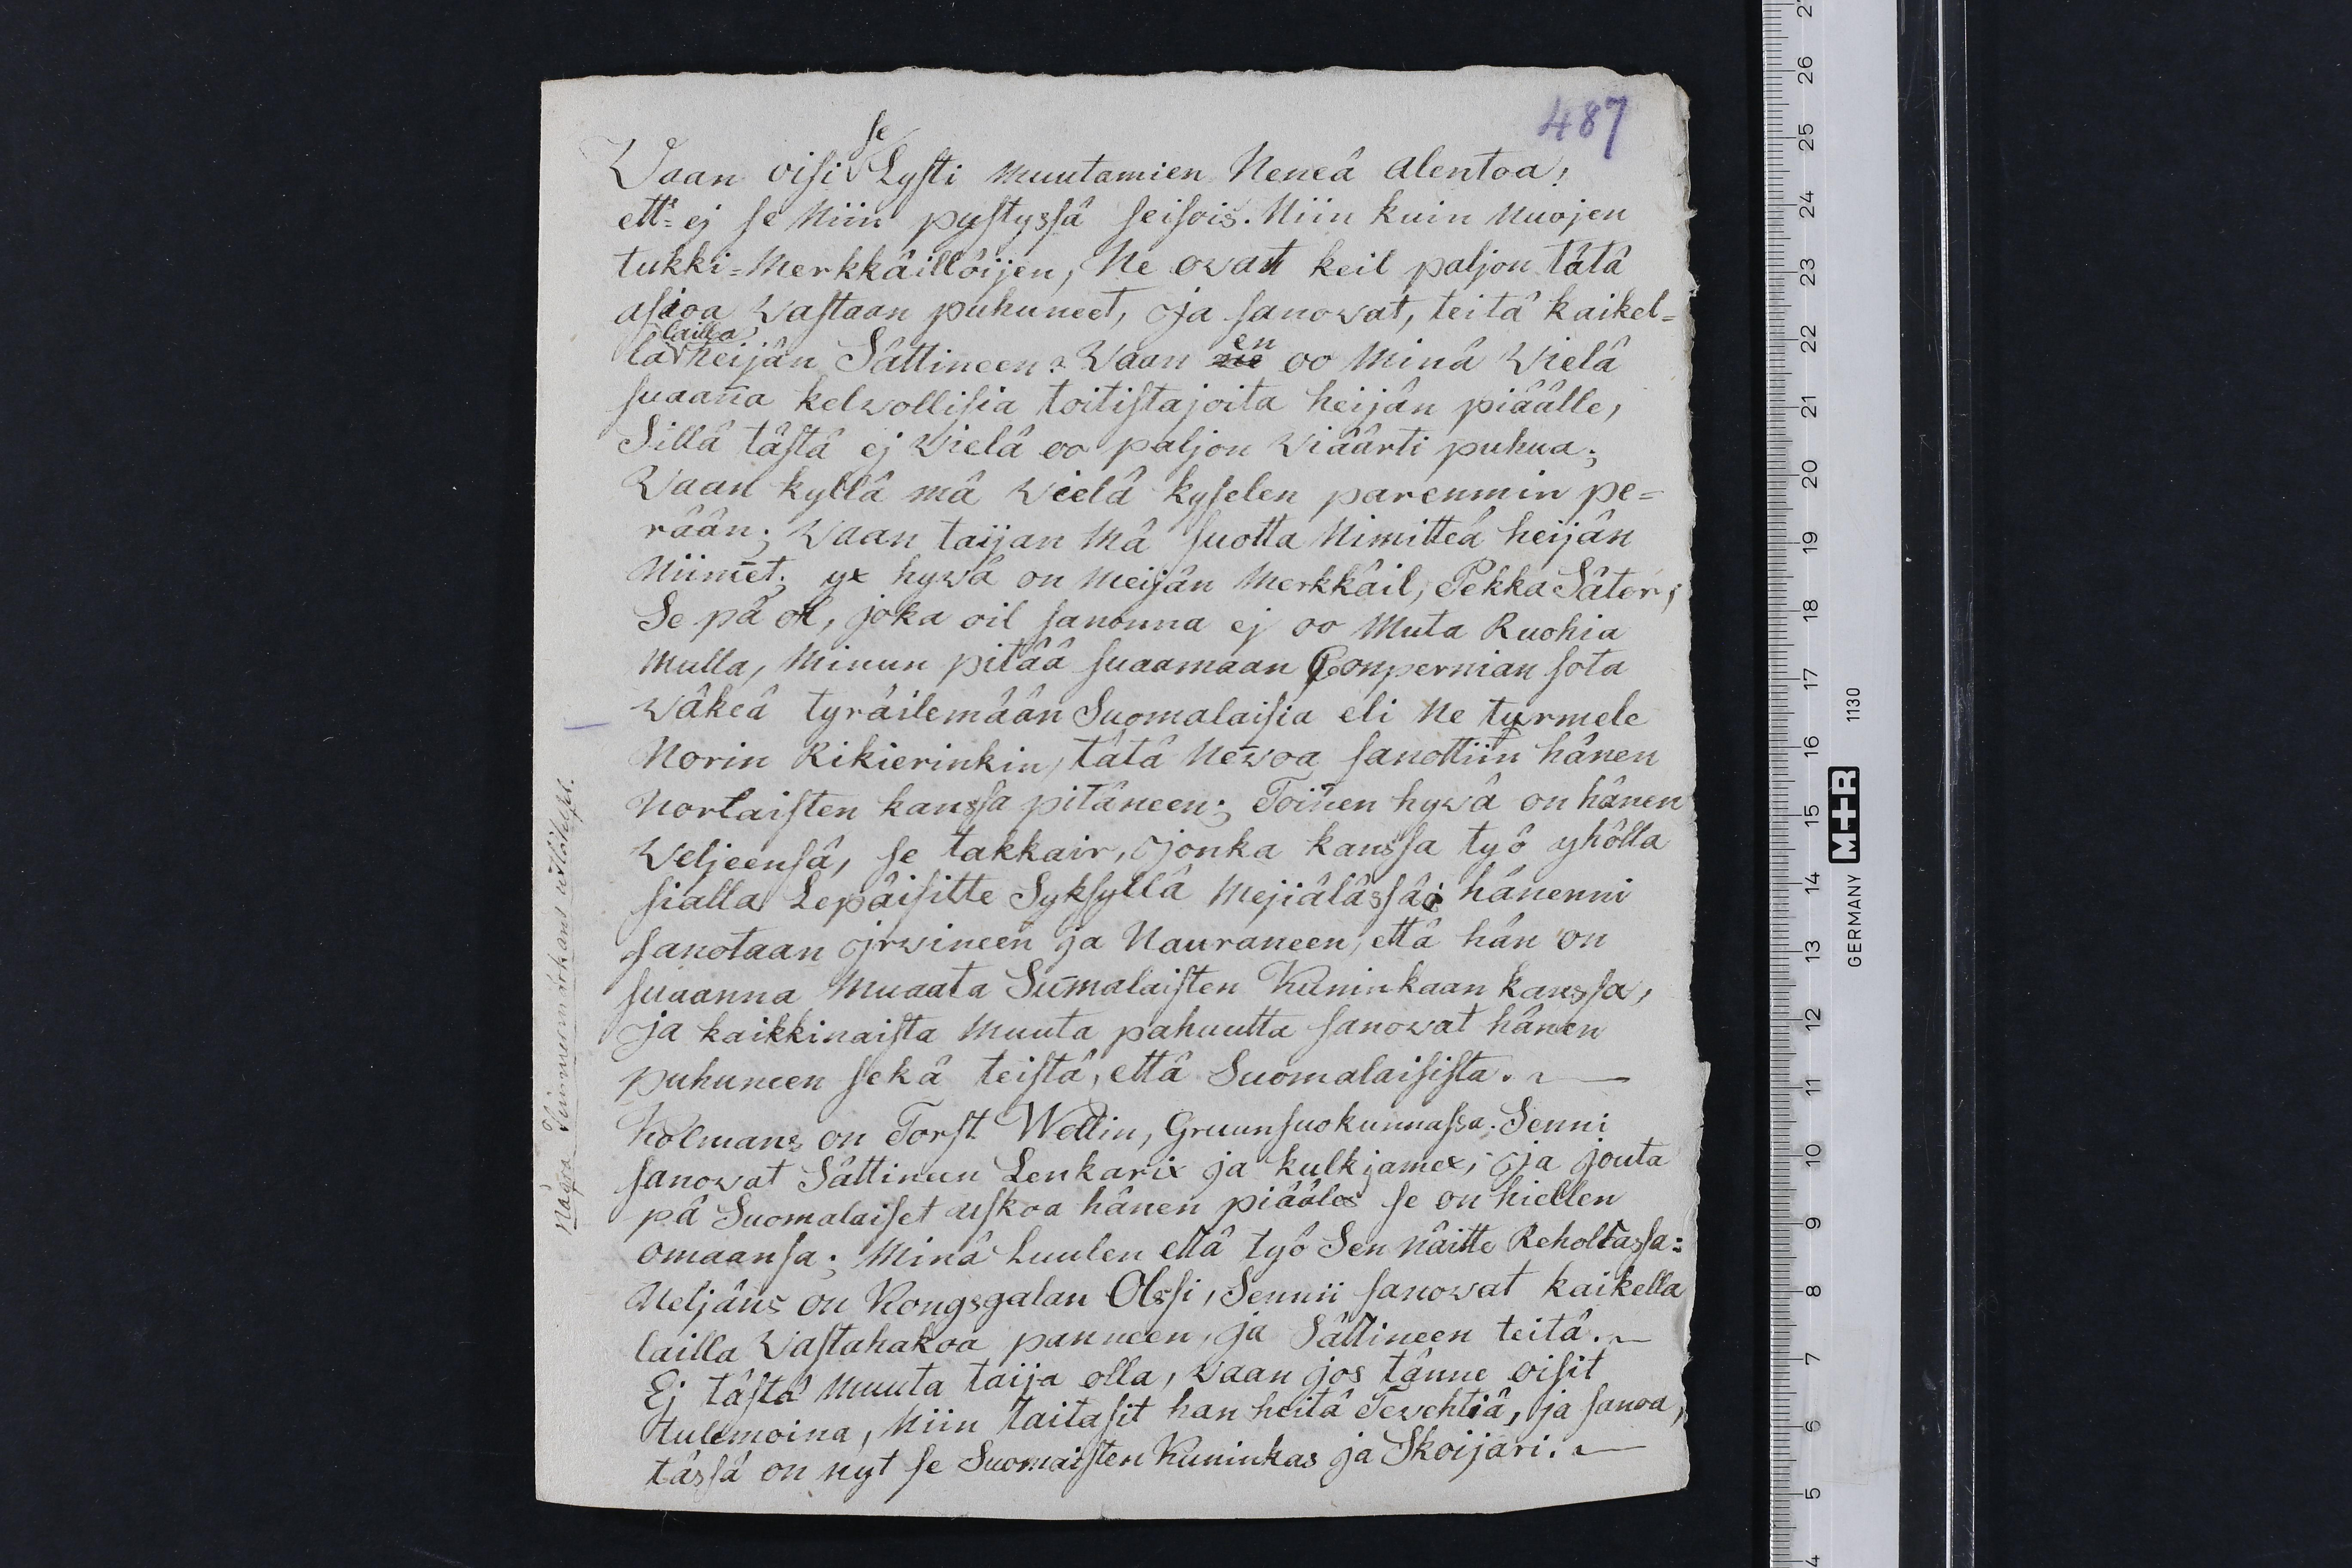 487
Waan oisi se Lysti muutamien Neneä alentoa!
ett'= ej se Niin pystyssä seisois. Niin kuin Nuojen
tukki=Merkkäillöijen, Ne owat keil paljon tätä
asioa Wastaan puhuneet, ja sanowat, teitä kaikel=
la lailla heijän Sättineen: Waan en oo Minä Wielä
suaana kelwollisia toitistajoita heijän piäälle,
Sillä tästä ej Wielä oo paljon Wiäärti puhua;
Waan kyllä mä Wielä kyselen paremmin pe=
rään; Waan taijan Mä suotta Nimitteä heijän
Niimet; yx hywä on meijän Merkkäil, Pekka Säter;
Se pä ol, joka oil sanonna ej oo Muta Ruohia
Mulla, Minun pitää suaamaan Compernian sota
Wäkeä tyräilemään Suomalaisia eli Ne tyrmele
Norin Rikierinkin, tätä Newoa sanottiin hänen
Norlaisten kanssa pitäneen; Toinen hywä on hänen
Weljeensä, se takkair, jonka kanssa työ yhöllä
sialla Lepäisitte Syksyllä Mejiälässä; hänenni
sanotaan jrwineen ja Nauraneen, että hän on
suaanna Muaata Sūmalaisten Kuninkaan kanssa,
ja kaikkinaista Muuta pahuutta sanowat hänen
puhuneen sekä teistä, että Suomalaisista.
Kolmans on Torst Wettin, Gruunsuokunnassa. Senni
sanowat Sättineen Lenkarix ja kulkjamex, ja jouta
pä Suomalaiset uskoa hänen piääles se on hiellen
omaansa; Minä Luulen että työ Sen Näitte Reholtassa:
Neljäns on Kongsgalan Olssi, Sennii sanowat kaikella
lailla Wastahakoa panneen, ja Sättineen teitä.
Ej tästä Muuta taija olla, Waan jos tänne oisit
tulemoina, Niin taitasit han heitä Tewehtiä, ja sanoa,
tässä on nyt se Suomaisten Kuninkas ja Skoijari.
Några Timmermärkares utlåtelser.